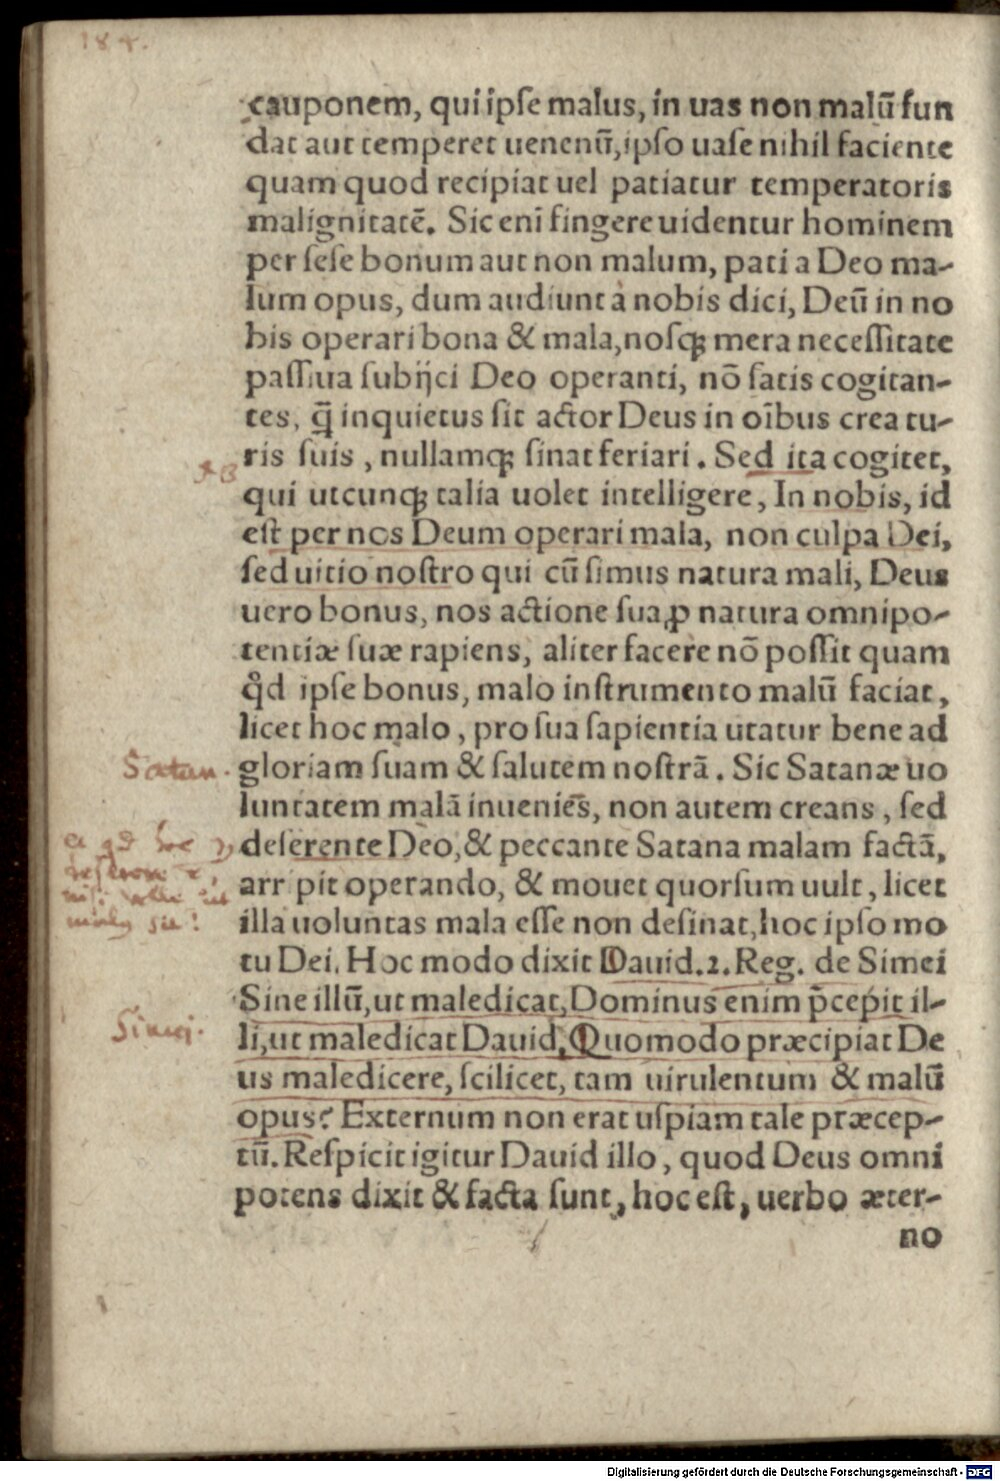 184.
cauponem, qui ipſe malus, in uas non malū fun
dat aut temperet uenenū, ipſo uaſe nihil faciente
quam quod recipiat uel patiatur temperatoris
malignitatē. Sic enī fingere uidentur hominem
per ſeſe bonum aut non malum, pati a Deo ma-
lum opus, dum audiunt à nobis dici, Deū in no
bis operari bona & mala, noſq; mera neceſſitate
paſſiua ſubijci Deo operanti, nō ſatis cogitan-
tes, q̄ inquietus ſit actor Deus in oībus creatu-
ris ſuis, nullamq; ſinat feriari. Sed ita cogitet,
qui utcunq; talia uolet intelligere, In nobis, id
eſt per nos Deum operari mala, non culpa Dei,
ſed uitio noſtro qui cū ſimus natura mali, Deus
uero bonus, nos actione ſua ꝓ natura omnipo-
tentiæ ſuæ rapiens, aliter facere nō poſſit quam
qd̊ ipſe bonus, malo inſtrumento malū faciat,
licet hoc malo, pro ſua ſapientia utatur bene ad
Satan.
gloriam ſuam & ſalutem noſtrā. Sic Satanæ uo
luntatem malā inueniēs, non autem creans, ſed
deſerente Deo, & peccante Satana malam factā,
arripit operando, & mouet quorſum uult, licet
illa uoluntas mala eſſe non deſinat, hoc ipſo mo
tu Dei. Hoc modo dixit Dauid. 2. Reg. de Simei
Sine illū, ut maledicat, Dominus enim p̄cepit il-
Simej.
li, ut maledicat Dauid, Quomodo præcipiat De
us maledicere, ſcilicet, tam uirulentum & malū
opus? Externum non erat uſpiam tale præcep-
tū. Reſpicit igitur Dauid illo, quod Deus omni
potens dixit & facta ſunt, hoc eſt, uerbo æter-
no
Digitalisierung gefördert durch die Deutsche Forschungsgemeinschaft - DFG